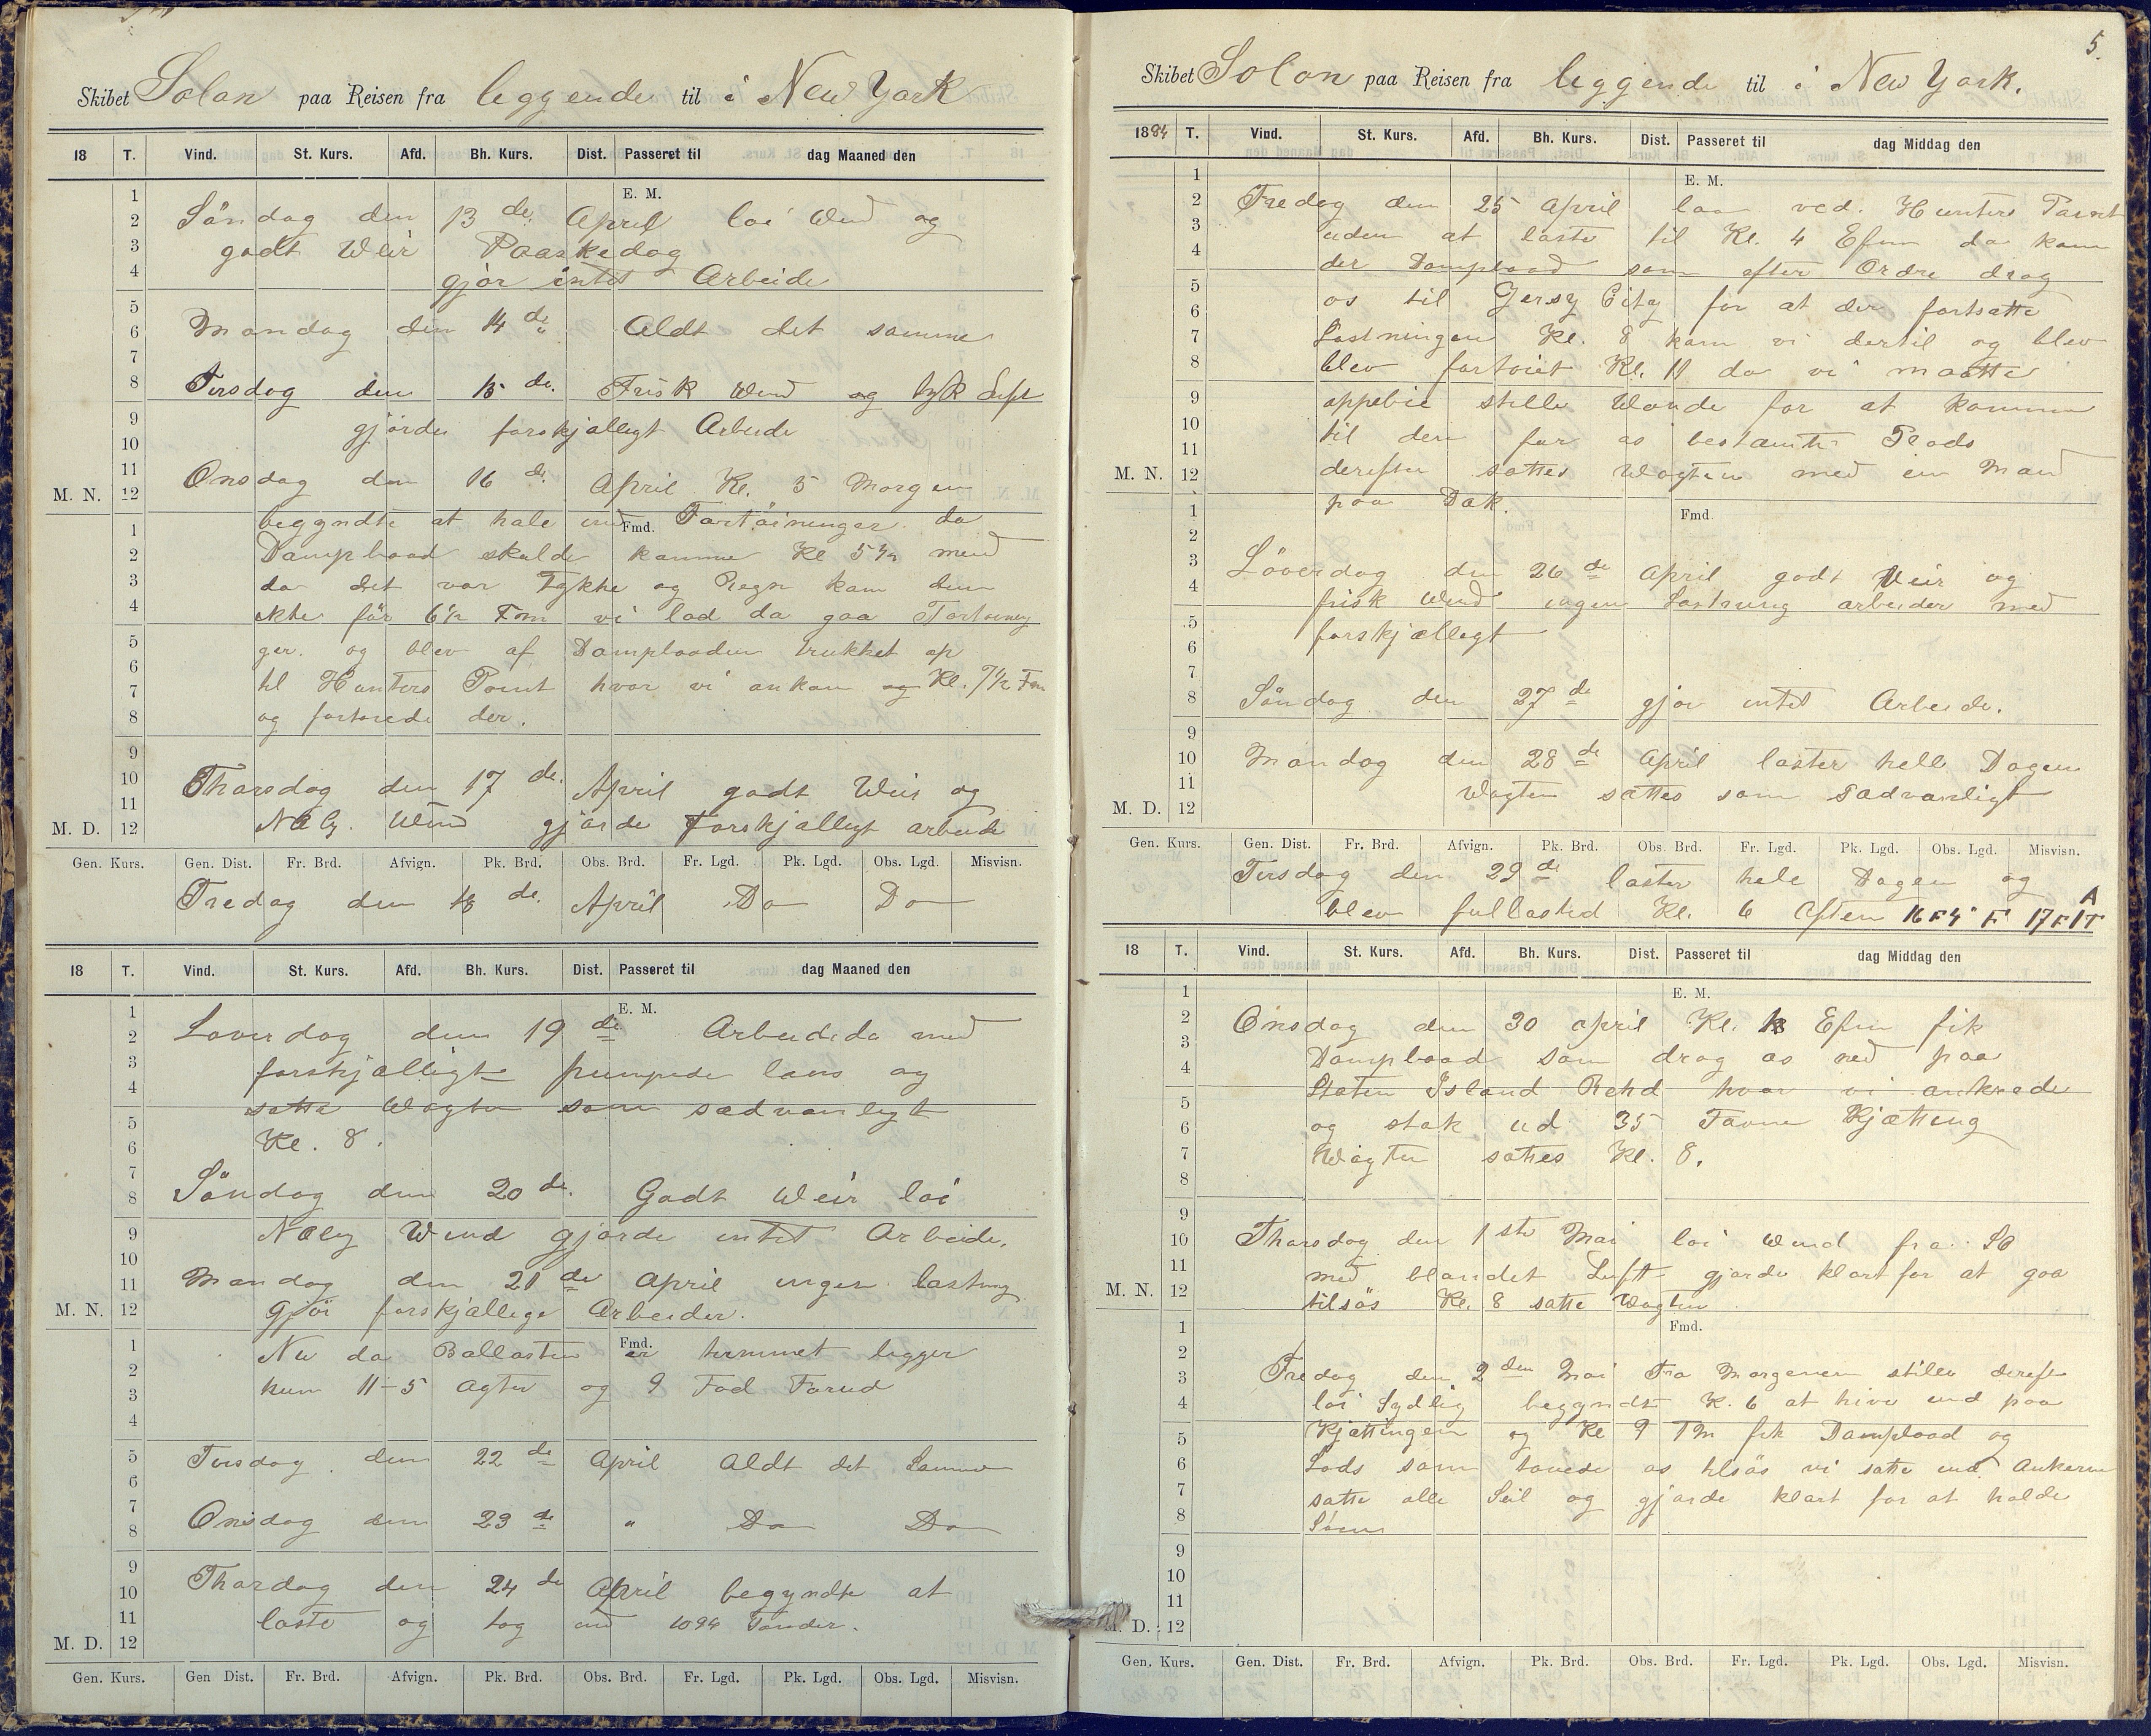 Skibet Solon paa Reisen fra leggende til i New York
18 T. Vind. St. Kurs. Afd. Bh. Kurs. Dist. Passeret til dag Maaned den
E. M.
Söndag den 13 de. April loi Wind og
godt Weir Paaskedag
gjör intet Arbeide
Mandag den 14 de Aldt det samme
Tirsdag den 15 de. Frisk Wind og tyk Luft
gjörde forskjalligt Arbeide
Onsdag den 16 de. April Kl. 5 Morgen
M. N.
begyndte at hale ind Fortöininger da
Fmd.
Dampbaad skulde komme Kl 5½ men
da det var Tykke og Regn kom den
ikke för 6½ Fm vi lod da gaa Fortöining
ger. og blev af Dampbaaden trukket op
til Hunters Point hvor vi ankom og Kl. 7½ Fm
og fortöiede der.
Tharsdag den 17 de. April godt Weir og
Nælg. Wind gjörde Forskjalligt arbeide
M. D.
Gen. Kurs. Gen. Dist. Fr. Brd. Afvign. Pk. Brd. Obs. Brd. Fr. Lgd. Pk. Lgd. Obs. Lgd. Misvisn.
Fredag den 18 de. April Do Do
18 T. Vind. St. Kurs. Afd. Bh. Kurs. Dist. Passeret til dag Maaned den
E. M.
Loverdag den 19 de Arbeidede med
forskjælligt pumpede læns og
satte Wagten som sædvanligt
Kl. 8.
Söndag den 20 de. Godt Weir loi
Nælg Wind gjorde intet Arbeide.
Mandag den 21 de April ingen lastning
gjör forskjallige Arbeider.
M. N.
Nu da Ballasten er temmet ligger
Fmd.
kun 11-5 agter og 9 Fod Forud
Tirsdag den 22 de April Aldt det Samme
Onsdag den 23 de " Do Do
Thorsdag den 24 de April begyndte at
laste og tog ind 1094 Tönder.
M. D.
Gen. Kurs. Gen Dist. Fr. Brd. Afvign. Pk. Brd. Obs. Brd. Fr. Lgd. Pk. Lgd. Obs. Lgd. Misvisn.
5.
Skibet Solon paa Reisen fra leggende til i New York.
1884 T. Vind. St. Kurs. Afd. Bh. Kurs. Dist. Passeret til dag Middag den
E. M.
Fredag den 25 April laa ved. Hunters Point
uden at laste til Kl. 4 Efm da kom
der Dampbaad som efter Ordre drog
os til Gersy City for at der fortsætte
Lastningen Kl. 8 kom vi dertil og blev
blev fortöiet Kl. 11 da vi maatte
oppebie stille Wande for at komme
til den for os bestamte Plads
derefter sattes Wagten med en Mand
M. N.
paa Dæk.
Fmd
Löverdag den 26 de April godt Veir og
frisk Wind ingen Lastning arbeider med
forskjælligt
Söndag den 27 de gjör intet Arbeide.
Mandag den 28 de April laster hele Dagen
Wagten sættes som sædvanligt
M. D.
Gen. Kurs. Gen. Dist. Fr. Brd. Afvign. Pk. Brd. Obs. Brd. Fr. Lgd. Pk. Lgd. Obs. Lgd. Misvisn.
Tirsdag den 29 de laster hele Dagen og
blev fullasted Kl. 6 Aften 16 F 4" F 17 F 1T A
18 T. Vind. St. Kurs. Afd. Bh. Kurs. Dist. Passeret til dag Middag den
E. M.
Onsdag den 30 april Kl. Efm fik
Dampbaad som drog os ned paa
Staten Island Rehd hvor vi ankrede
og stak ud 35 Favne Kjætting
Wagten sattes Kl. 8.
Tharsdag den 1 ste Mai loi Wind fra SO
med blandet Luft gjorde klart for at gaa
tilsös Kl. 8 satte Wagten
M. N.
Fmd.
Fredag den 2 den Mai Fra Morgenen stille dereft
loi Sydlig begyndte K. 6 at hive ind paa
Kjættingen og Kl 9 Fm fik Dampbaad og
Lods som touede os tilsös vi satte ind Ankerne
satte alle Seil og gjorde klart for at holde
Söen
M. D.
Gen. Kurs. Gen. Dist. Fr. Brd. Afvign. Pk. Brd. Obs. Brd. Fr. Lgd. Pk. Lgd. Obs. Lgd. Misvisn.